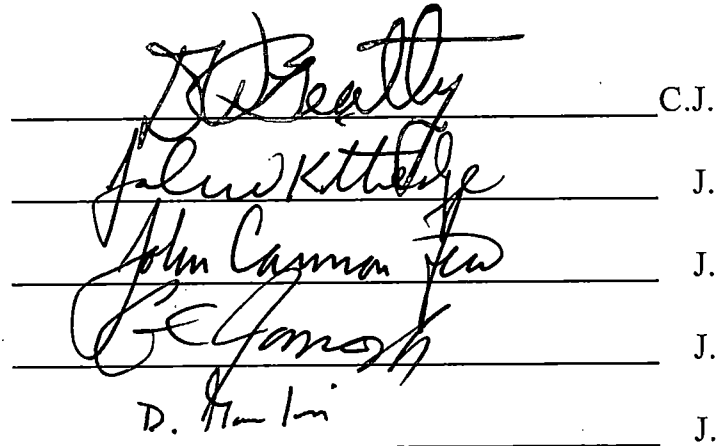 DW Beatty C.J.
John W Kittredge J.
John Cannon Few J.
G E James J.
D. J.